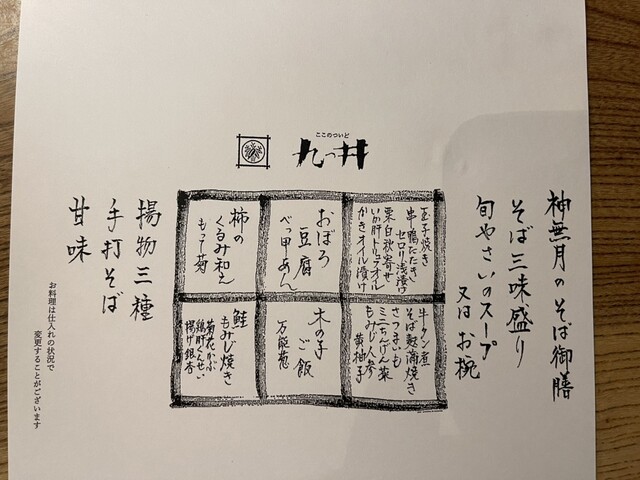 ここのついど
九つ井
神無月のそば御膳
そば三味盛り
旬やさいのスープ
又はお椀
玉子焼き
串鴨たたき
セロリ浅漬け
栗白秋寄せ
いか肝トリュフオイル
かきオイル漬け
おぼろ
豆腐
べっ甲あん
柿の
くるみ和え
もって菊
牛タン煮
そば麩蒲焼き
さつまいも
ミニちんげん菜
もみじ人参
黄柚子
木の子
ご飯
万能葱
鮭
もみじ焼き
菊花かぶ
鶏肝くんせい
揚げ銀杏
揚物三種
手打そば
甘味
お料理は仕入れの状況で
変更することがございます